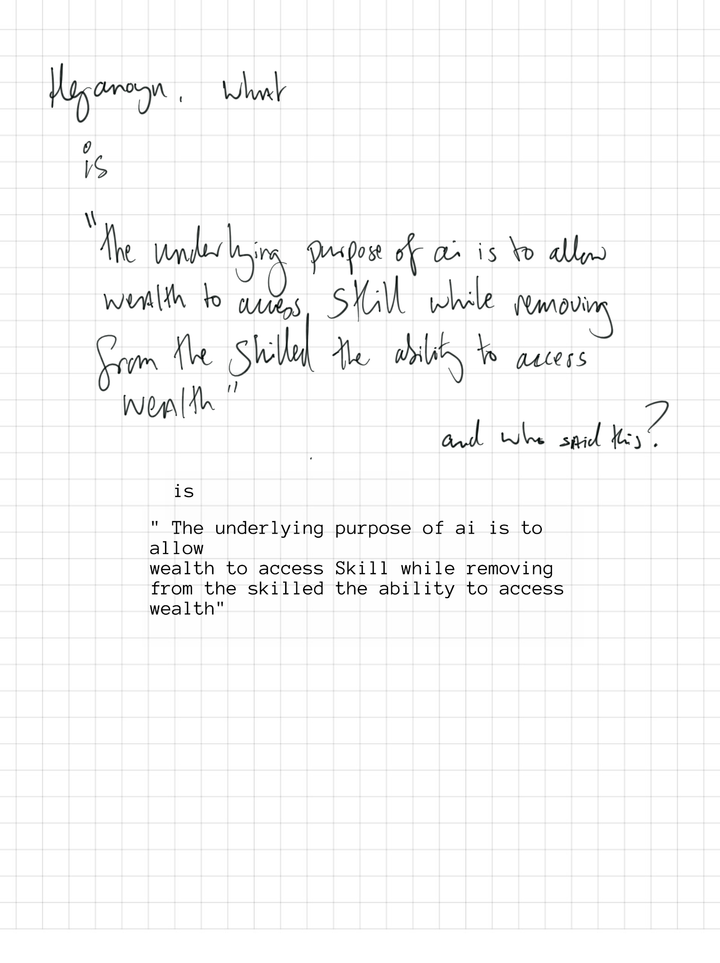 what
is
"the underlying purpose of ai is to allow
wealth to access skill while removing
from the skilled the ability to access
wealth"
and who said this?
is
" The underlying purpose of ai is to
allow
wealth to access Skill while removing
from the skilled the ability to access
wealth"